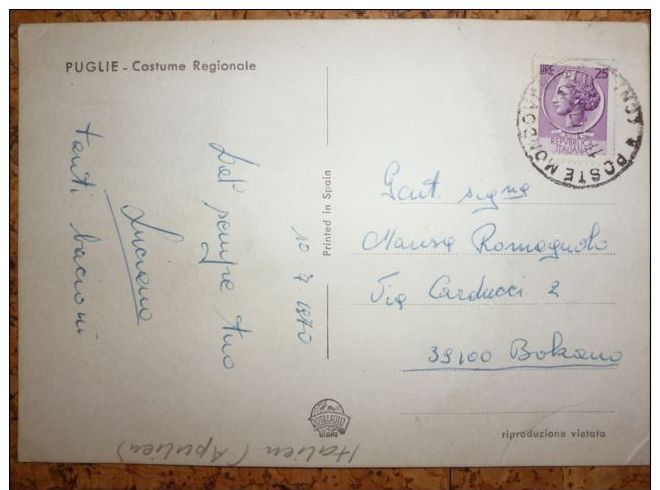 PUGLIE - Costume Regionale
10 7 1970
Dal sempre tuo
Luciano
tanti bacioni
Printed in Spain
LIRE 25
REPVBBLICA
ITALIANA
POSTE
Gent. signa
Marisa Romagnolo
Via Carducci 2
39100 Bolzano
riproduzione vietata
Italien (Apulien)